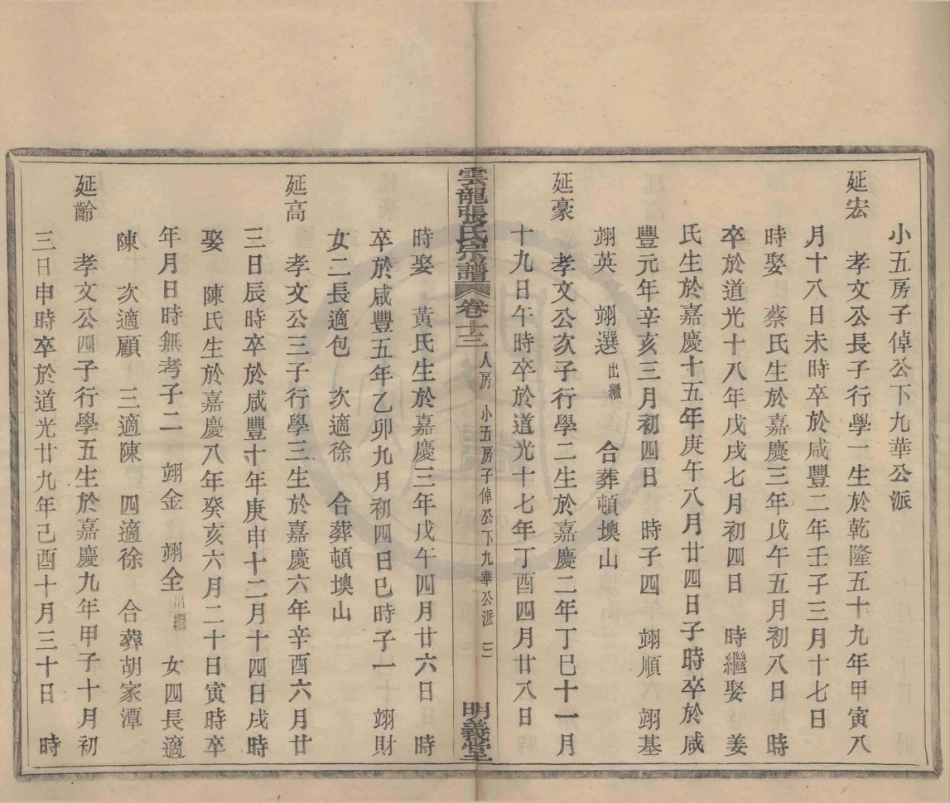 小五房子倬公下九華公派
延宏　孝文公長子行學一生於乾隆五十九年甲寅八
月十八日未時卒於咸豐二年壬子三月十七日
時娶　蔡氏生於嘉慶三年戊午五月初八日　時
卒於道光十八年戊戌七月初四日　時繼娶　姜
氏生於嘉慶十五年庚午八月廿四日子時卒於咸
豐元年辛亥三月初四日　時子四　翊順　翊基
翊英　翊選出繼　合葬頓墺山
延豪　孝文公次子行學二生於嘉慶二年丁巳十一月
十九日午時卒於道光十七年丁酉四月廿八日
雲龍張氏宗譜　卷十三　人房　小五房子倬公下九華公派　三　明義堂
時娶　黃氏生於嘉慶三年戊午四月廿六日　時
卒於咸豐五年乙卯九月初四日巳時子一　翊財
女二長適包　次適徐　合葬頓墺山
延高　孝文公三子行學三生於嘉慶六年辛酉六月廿
三日辰時卒於咸豐十年庚申十二月十四日戌時
娶　陳氏生於嘉慶八年癸亥六月二十日寅時卒
年月日時無考子二　翊金　翊全出繼　女四長適
陳　次適顧　三適陳　四適徐　合葬胡家潭
延齡　孝文公四子行學五生於嘉慶九年甲子十月初
三日申時卒於道光廿九年己酉十月三十日　時